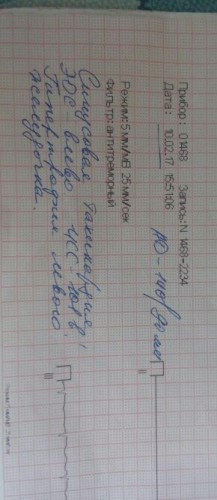 Прибор: 01468 Запись: N 1468-2234
Дата: 10.02.17 15:51:06
АД - 140/90 мм
Режим: 5 мм/мВ 25 мм/сек
Фильтр: антитреморный
Синусовая тахикардия,
ЭОС - влево ЧСС
Гипертрофия левого
желудочка.
III
III